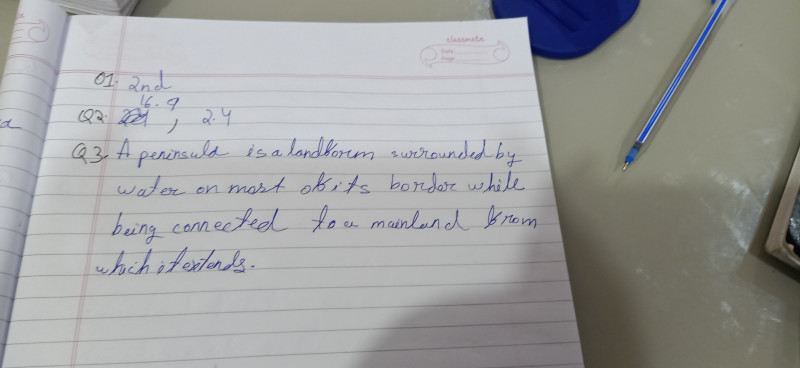 classmate
Date
Page
Q1. 2nd
16.9
Q2. , 2.4
Q3. A peninsula is a landform surrounded by
water on most of its border while
being connected to a mainland from
which it extends.